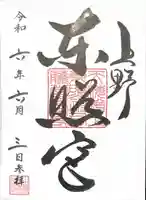 上野
東照宮
令和六年六月三日参拝